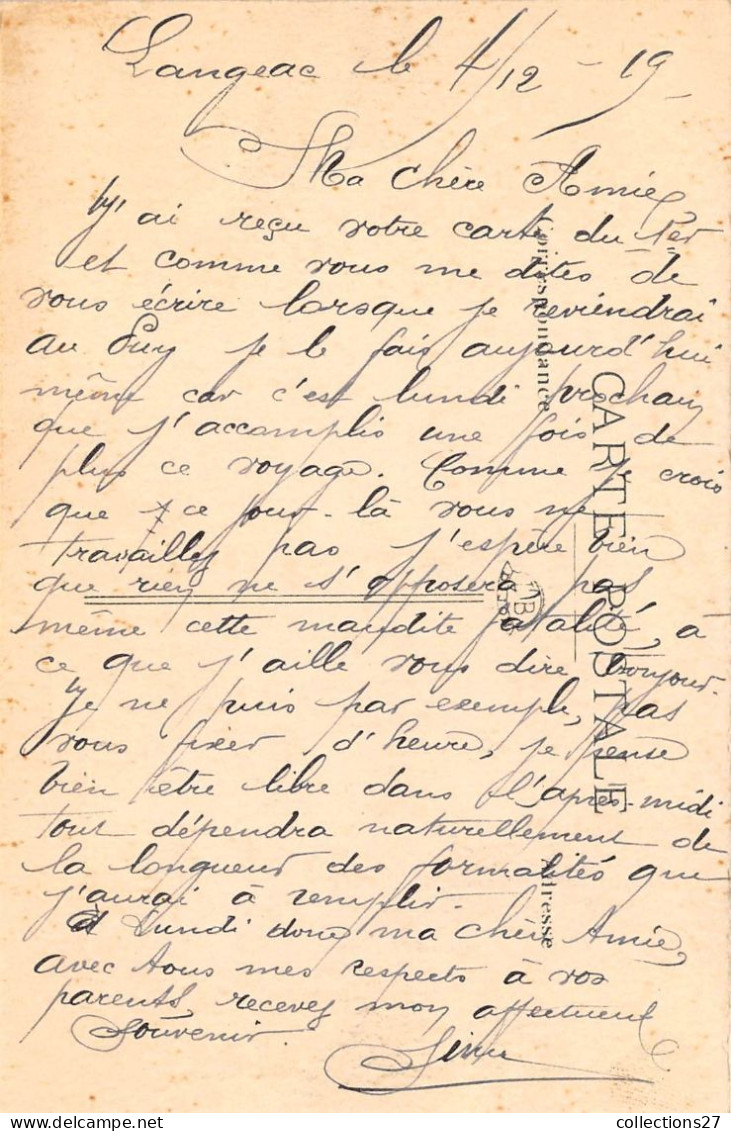 Langeac le 4/12 - 19 -
Ma chère Amie,
J'ai reçu votre carte du 1er
et comme vous me dites de
vous écrire lorsque je reviendrai
au Puy je le fais aujourd'hui
même car c'est lundi prochain
que j'accomplis une fois de
plus ce voyage. Comme je crois
que ce jour-là vous ne
travaillez pas j'espère bien
que rien ne s'opposera pas
même cette maudite fatalité, à
ce que j'aille vous dire bonjour.
Je ne puis par exemple, pas
vous fixer d'heure, je pense
bien être libre dans l'après-midi
tout dépendra naturellement de
la longueur des formalités que
j'aurai à remplir.
A Lundi donc ma chère Amie,
avec tous mes respects à vos
parents, recevez mon affectueux
Souvenir
CARTE POSTALE
Correspondance
Adresse
collections27